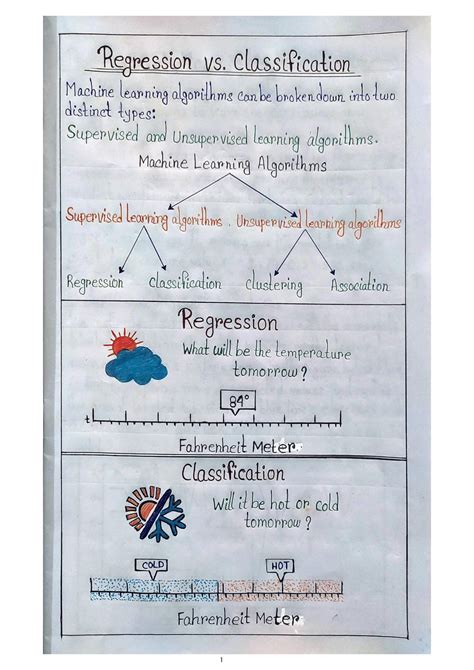 Regression vs. Classification
Machine learning algorithms can be broken down into two
distinct types:
Supervised and Unsupervised learning algorithms.
Machine Learning Algorithms
Supervised learning algorithms. Unsupervised learning algorithms
Regression Classification Clustering Association
Regression
What will be the temperature
tomorrow?
84°
t
Fahrenheit Meter
Classification
Will it be hot or cold
tomorrow?
COLD HOT
Fahrenheit Meter
1